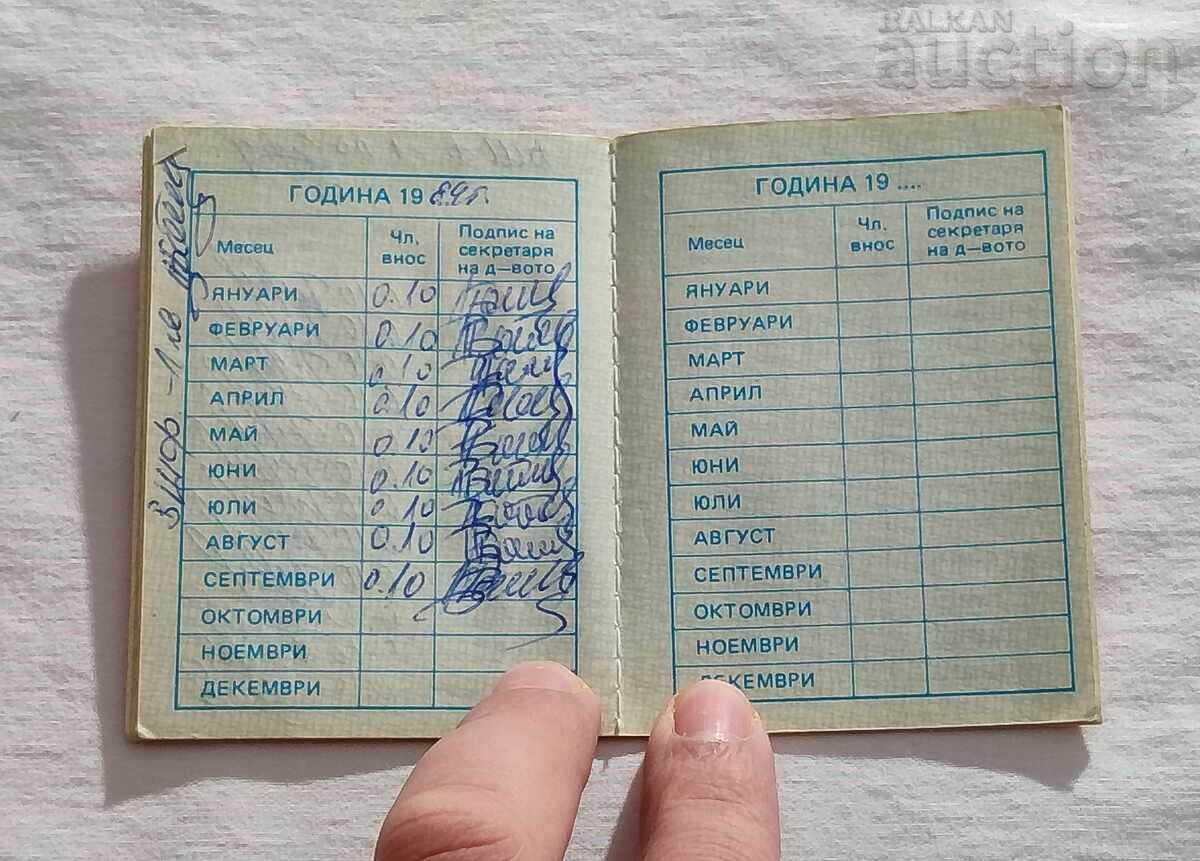 BALKAN
auction
ГОДИНА 1989г.
Месец
Чл. внос
Подпис на секретаря на д-вото
ЯНУАРИ 0.10
ФЕВРУАРИ 0.10
МАРТ 0.10
АПРИЛ 0.10
МАЙ 0.10
ЮНИ 0.10
ЮЛИ 0.10
АВГУСТ 0.10
СЕПТЕМВРИ 0.10
ОКТОМВРИ
НОЕМВРИ
ДЕКЕМВРИ
- 1 лв
ГОДИНА 19 ....
Месец
Чл. внос
Подпис на секретаря на д-вото
ЯНУАРИ
ФЕВРУАРИ
МАРТ
АПРИЛ
МАЙ
ЮНИ
ЮЛИ
АВГУСТ
СЕПТЕМВРИ
ОКТОМВРИ
НОЕМВРИ
ДЕКЕМВРИ